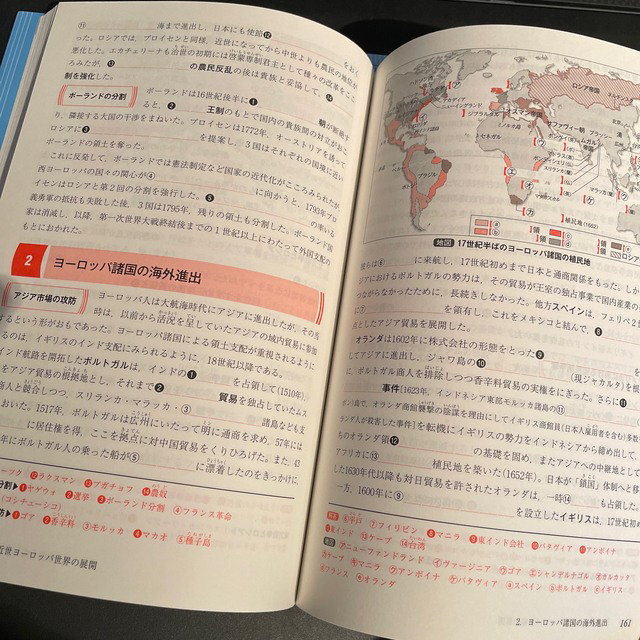 ⑪ 海まで進出し、日本にも使節⑫ をおく
った。ロシアでは、プロイセンと同様、近世になってから中世よりも農民の地位が
悪化した。エカチェリーナも治世の初期には啓蒙専制君主として種々の改革をここ
ろみたが、⑬ の農民反乱の後は貴族と妥協して、⑭
制を強化した。
ポーランドの分割
ポーランドは16世紀後半に❶ 朝が断絶す
ると、❷ 王制のもとで国内の貴族間の対立がおこ
り、隣接する大国の干渉をまねいた。プロイセンは1772年、オーストリアを誘って
ロシアに❸ を提案し、3国はそれぞれの国境に近い
ポーランドの領土を奪った。
これに反発して、ポーランドでは憲法制定など国家の近代化がこころみられたが、
西ヨーロッパの国々の関心が④ に向かうと、1793年プロ
イセンはロシアと第2回の分割を強行した。⑤ の率いる
義勇軍の抵抗も失敗した後、3国は1795年、残りの領土も分割した。ポーランド国
家は消滅し、以降、第一次世界大戦終結後まで1世紀以上にわたって外国支配の
もとにおかれた。
2 ヨーロッパ諸国の海外進出
アジア市場の攻防
ヨーロッパ人は大航海時代にアジアに進出したが、その当
時は、以前から活況を呈していたアジアの域内貿易に参加
するという形がおもであった。ヨーロッパ諸国による領土支配が重視されるように
るのは、イギリスのインド支配にみられるように、18世紀以降である。
インド航路を開拓したポルトガルは、インドの❶ を占領して(1510年)、
をアジア貿易の根拠地とし、それまで❷ 貿易を独占していたムス
商人と競合しつつ、スリランカ・マラッカ・③ 諸島なども支
おいた。1517年、ポルトガルは広州にいたって明に通商を求め、57年には
に居住権を得、ここを拠点に対中国貿易をくりひろげた。また、43
年にポルトガル人の乗った船が⑤ に漂着したのをきっかけに、
⑫ラクスマン ⑬プガチョフ ⑭農奴
分割▶❶ヤゲウォ ❷選挙 ❸ポーランド分割 ④フランス革命
(コシチューシコ)
❶ゴア ❷香辛料 ③モルッカ ❹マカオ ⑤種子島
近世ヨーロッパ世界の展開
ロシア帝国
オスマン帝国
サファヴィー朝
ムガル
アカディア
ニューイングランド
ジブラルタル
セネガル
ブラッシー
マドラス(英)
マラッカ
植民地(1652)
地図 17世紀半ばのヨーロッパ諸国の植民地
彼らは⑥ に来航し、17世紀初めまで日本と通商関係をもった。しか
ジアにおけるポルトガルの勢力は、その貿易が王室の独占事業で国内産業の
つながらなかったために、長続きしなかった。他方スペインは、フェリペ
に を領有し、これをメキシコと結んで、⑧
点としたアジア貿易を展開した。
オランダは1602年に株式会社の形態をとった⑨
してアジアに進出し、ジャワ島の⑩ (現ジャカルタ)を根
に、ポルトガル商人を排除しつつ香辛料貿易の実権をにぎった。さらに⑪
事件[1623年、インドネシア東部モルッカ諸島の⑪
ボン)島で、オランダ商館襲撃の陰謀を理由にしてイギリス商館員(日本人雇用者を含む)多数
ランダ人が殺害した事件]を転機にイギリスの勢力をインドネシアから締め出して、
るオランダ領⑫ の基礎を固め、またアジアへの中継地として
アフリカに⑬ 植民地を築いた(1652年)。日本が「鎖国」体制へと移
した1630年代以降も対日貿易を許されたオランダは、一時⑭ も占領した。
一方、1600年に⑨ を設立したイギリスは、17世
⑥平戸 ⑦フィリピン ⑧マニラ ⑨東インド会社 ⑩バタヴィア ⑪アンボイナ
東インド ⑬ケープ ⑭台湾
地図 ㋐ニューファンドランド ㋑ヴァージニア ㋒ゴア ㋓シャンデルナゴル ㋔カルカッタ
㋕ケープ ㋖マニラ ㋗アンボイナ ㋘バタヴィア ⓐスペイン ⓑポルトガル ⓒイギリス
ⓓフランス ⓔオランダ
2. ヨーロッパ諸国の海外進出 161